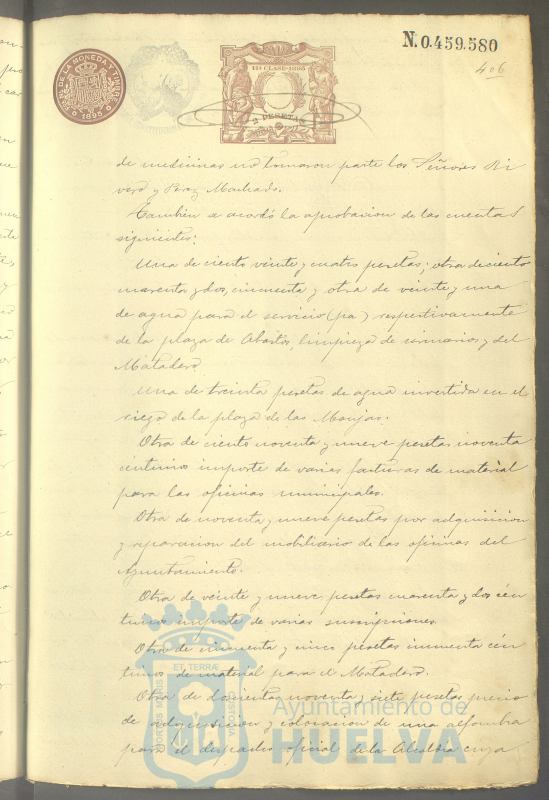 N. 0.459.580
406
DE LA MONEDA Y TIMBRE
1895
11ª CLASE-1895
2 PESETAS
de medicinas no tomaron parte los Señores Ri
vero y Perez Machado.
Tambien se acordó la aprobacion de las cuentas
siguientes:
Una de ciento veinte y cuatro pesetas; otra de ciento
cuarenta y dos, cincuenta y otra de veinte y una
de agua para el servicio respectivamente
de la plaza de Abastos, limpieza de urinarios y del
Matadero.
Una de treinta pesetas de agua invertida en el
riego de la plaza de las Monjas.
Otra de ciento noventa y nueve pesetas noventa
centimos importe de varias facturas de material
para las oficinas municipales.
Otra de noventa y nueve pesetas por adquisicion
y reparacion del mobiliario de las oficinas del
Ayuntamiento.
Otra de veinte y nueve pesetas cuarenta y dos cén
timos importe de varias suscripciones.
Otra de cincuenta y cinco pesetas cincuenta cén
timos de material para el Matadero.
Otra de doscientas noventa y siete pesetas precio
de adquisicion y colocacion de una alfombra
para el despacho oficial de la Alcaldia cuya
ET TERRÆ
PORTUS MARIS
CUSTODIA
Ayuntamiento de
HUELVA